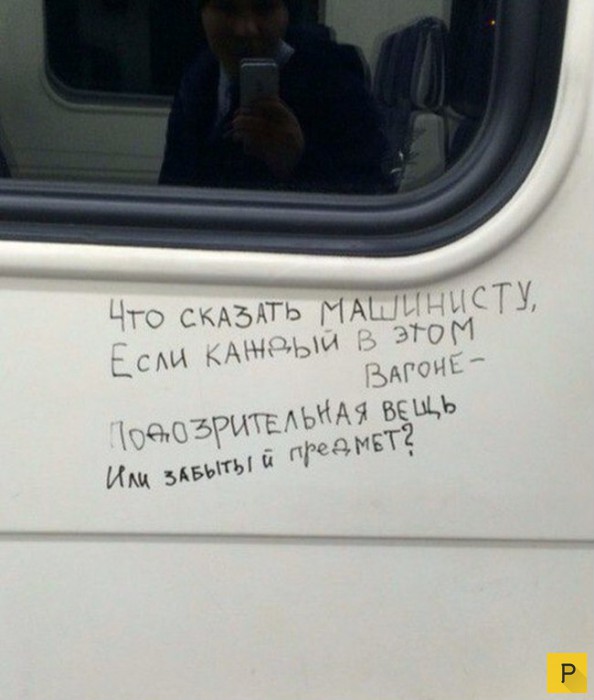 Что сказать машинисту,
Если каждый в этом
Вагоне –
Подозрительная вещь
Или забытый предмет?
P